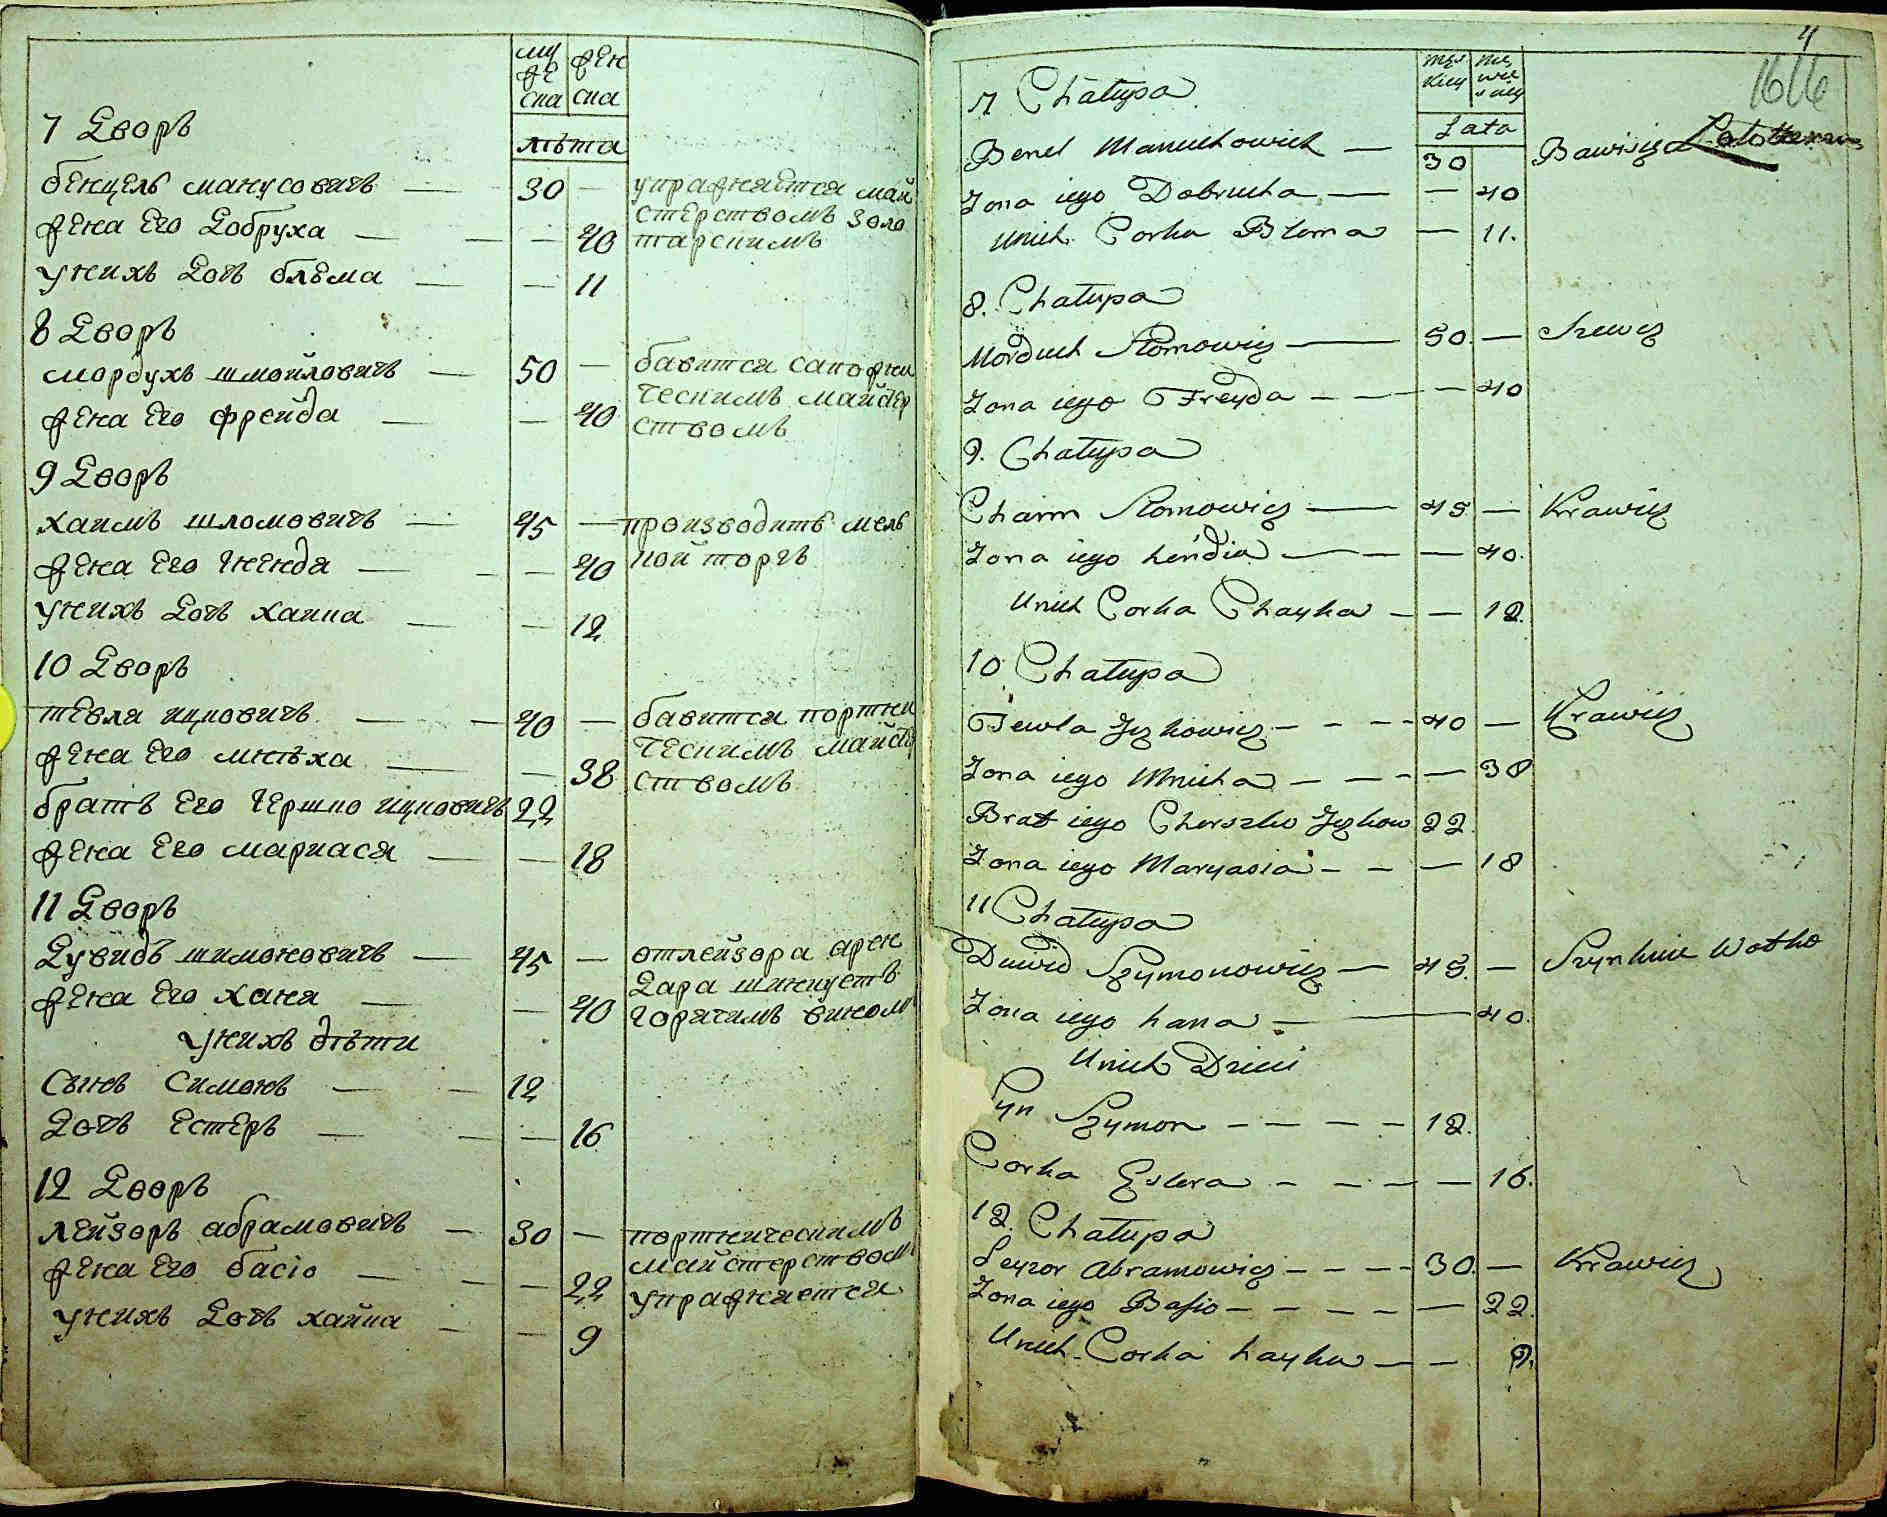 муже ска
жен ска
лѣта
7 Дворъ
бенцель манусовичъ — 30 —
управжняется май
жена его Добруха — — 40
стерствомъ золо
тарскимъ
у нихъ дочь блюма — — 11
8 Дворъ
мордухъ шмойловичъ — 50 —
бавится сапожни
жена его фрейда — — 40
ческимъ майстер
ствомъ
9 Дворъ
хаимъ шломовичъ — 45 —
производитъ мель
жена его гненда — — 40
кой торгъ
у нихъ дочь хаика — — 12
10 Дворъ
тевля ицковичъ — 40 —
бавится портни
жена его мнѣха — — 38
ческимъ майстер
ствомъ
братъ его гершко ицковичъ 22
жена его мариася — — 18
11 Дворъ
Дувидъ шимоновичъ — 45 —
отлейзора арен
жена его ханя — — 40
дара шинкуетъ
горячимъ виномъ
у нихъ дѣти
сынъ симонъ — — 12
дочь естеръ — — 16
12 Дворъ
лейзоръ абрамовичъ — 30 —
портническимъ
жена его басіо — — 22
майстерствомъ
упражняется
у нихъ дочь хайка — — 9
4
1616
męs kiey
nie wie sciey
Lata
7 Chałupa
Benel Manuchowich — 30
Bawisię
Zona iego Dobrucha — — 40
Unich Corka Bloma — 11.
8. Chałupa
Morduch Slomowicz — 50. — Szewcz
Zona iego Freyda — — — 40
9. Chałupa
Chaim Slomowicz — 45 — Krawicz
Zona iego hendia — — — 40.
Unich Corka Chayka — — 12.
10 Chałupa
Tewla Jczkowicz — — — 40 — Krawicz
Zona iego Mnicha — — — — 38
Brat iego Cherszko Jczkow 22.
Zona iego Maryasia — — — 18
11 Chałupa
Duwid Szymonowicz — 45. — Szynkuie Wotko
Zona iego hana — — 40.
Unich Dzieci
Syn Szymon — — — — 12.
Corka Estera — — — — 16.
12. Chałupa
Leyzor Abramowicz — — — 30. — Krawicz
Zona iego Basio — — — — — 22.
Unich Corka hayka — — 9.